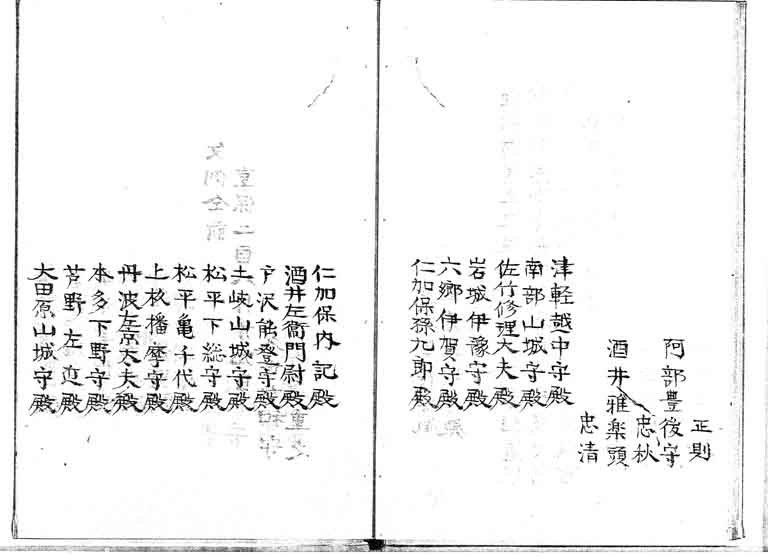 正則
阿部豊後守
忠秋
酒井雅楽頭
忠清
津軽越中守殿
南部山城守殿
佐竹修理大夫殿
岩城伊豫守殿
六郷伊賀守殿
仁加保孫九郎殿
仁加保内記殿
酒井左衛門尉殿
戸沢能登守殿
土岐山城守殿
松平下総守殿
松平亀千代殿
上杉播磨守殿
丹波左京大夫殿
本多下野守殿
芦野左近殿
大田原山城守殿